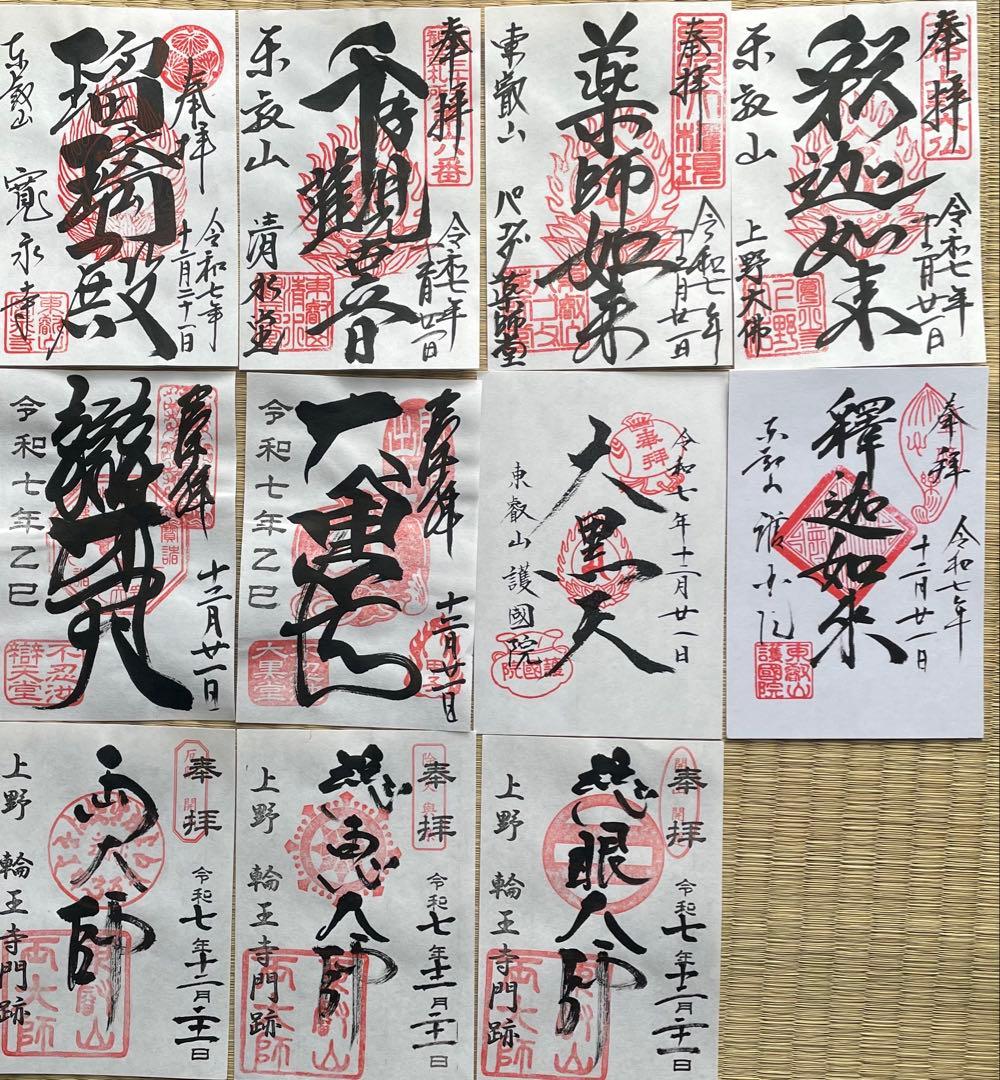 奉拝
瑠璃殿
令和七年
十二月二十一日
東叡山
寛永寺
奉拝
千手観世音
令和七年
十二月廿一日
東叡山
清水堂
奉拝
薬師如来
令和七年
十二月廿一日
東叡山
パゴダ薬師堂
奉拝
釈迦如来
令和七年
十二月廿一日
東叡山
上野大佛
奉拝
辯才天
十二月廿一日
令和七年乙巳
不忍池
辯天堂
奉拝
大黒天
十二月廿一日
令和七年乙巳
大黒堂
奉拝
令和七年十二月廿一日
大黒天
東叡山護國院
護國院
奉拝
釋迦如来
令和七年
十二月廿一日
東叡山
護國院
東叡山
護國院
奉拝
両大師
令和七年十二月二十一日
上野 輪王寺門跡
東叡山
両大師
奉拝
令和七年十二月二十一日
上野 輪王寺門跡
東叡山
両大師
奉拝
慈眼大師
令和七年十二月二十一日
上野 輪王寺門跡
東叡山
両大師